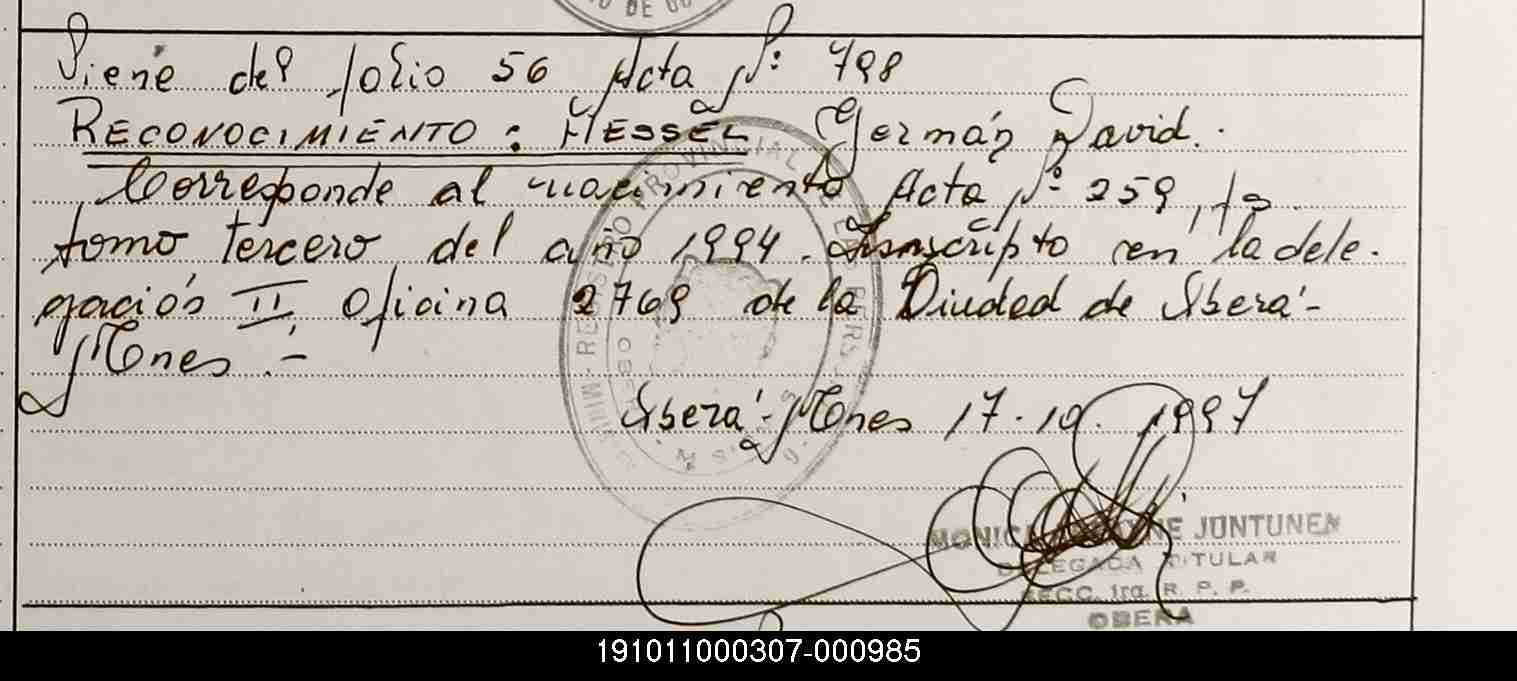 Viene del folio 56 Acta Nº: 798
RECONOCIMIENTO: HESSEL Germán David.
Corresponde al nacimiento Acta Nº: 259, tº
tomo tercero del año 1994. transcripto en la dele-
gación II, Oficina 2769 de la Ciudad de Oberá-
Mnes.-
Oberá-Mnes 17.10.1997
MONICA JUNTUNEN
DELEGADA TITULAR
SECC. 1ra. R. P. P.
OBERA
191011000307-000985